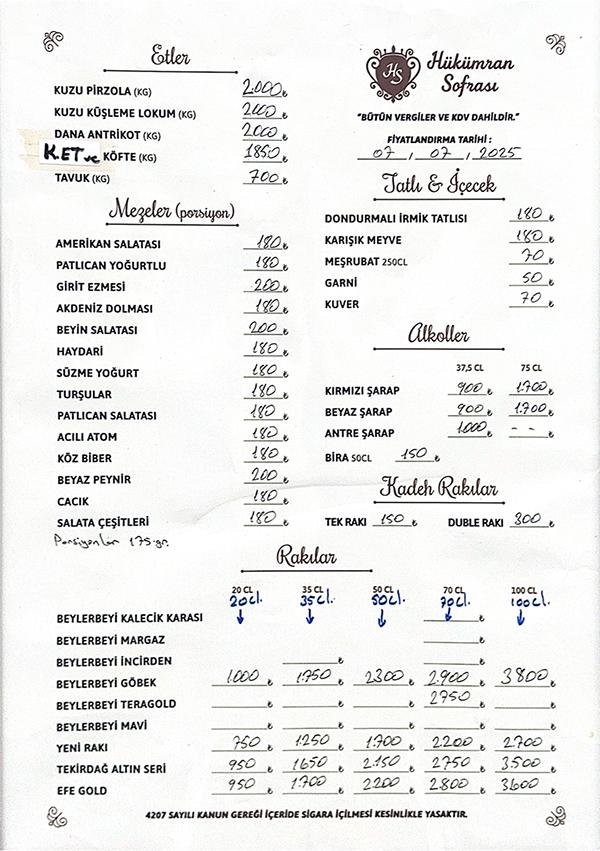 Etler
KUZU PİRZOLA (KG) 2.000 ₺
KUZU KÜŞLEME LOKUM (KG) 2000 ₺
DANA ANTRİKOT (KG) 2000 ₺
K.ET ve KÖFTE (KG) 1850 ₺
TAVUK (KG) 700 ₺
Mezeler (porsiyon)
AMERİKAN SALATASI 180 ₺
PATLICAN YOĞURTLU 180 ₺
GİRİT EZMESİ 200 ₺
AKDENİZ DOLMASI 180 ₺
BEYİN SALATASI 200 ₺
HAYDARİ 180 ₺
SÜZME YOĞURT 180 ₺
TURŞULAR 180 ₺
PATLICAN SALATASI 180 ₺
ACILI ATOM 180 ₺
KÖZ BİBER 180 ₺
BEYAZ PEYNİR 200 ₺
CACIK 180 ₺
SALATA ÇEŞİTLERİ 180 ₺
Porsiyonlar 175 gr.
HS
Hükümran
Sofrası
"BÜTÜN VERGİLER VE KDV DAHİLDİR."
FİYATLANDIRMA TARİHİ :
07 / 07 / 2025
Tatlı & İçecek
DONDURMALI İRMİK TATLISI 180 ₺
KARIŞIK MEYVE 180 ₺
MEŞRUBAT 250CL 70 ₺
GARNİ 50 ₺
KUVER 70 ₺
Alkoller
37,5 CL 75 CL
KIRMIZI ŞARAP 900 ₺ 1.700 ₺
BEYAZ ŞARAP 900 ₺ 1.700 ₺
ANTRE ŞARAP 1.000 ₺ - - ₺
BİRA 50CL 150 ₺
Kadeh Rakılar
TEK RAKI 150 ₺ DUBLE RAKI 300 ₺
Rakılar
20 CL 35 CL 50 CL 70 CL 100 CL
20cl. 35cl. 50cl. 70cl. 100cl.
BEYLERBEYİ KALECİK KARASI ₺
BEYLERBEYİ MARGAZ ₺
BEYLERBEYİ İNCİRDEN ₺ ₺
BEYLERBEYİ GÖBEK 1.000 ₺ 1.750 ₺ 2300 ₺ 2.900 ₺ 3800 ₺
BEYLERBEYİ TERAGOLD ₺ ₺ ₺ 2750 ₺ ₺
BEYLERBEYİ MAVİ ₺ ₺ ₺ ₺ ₺
YENİ RAKI 750 ₺ 1.250 ₺ 1.700 ₺ 2200 ₺ 2.700 ₺
TEKİRDAĞ ALTIN SERİ 950 ₺ 1650 ₺ 2.150 ₺ 2750 ₺ 3.500 ₺
EFE GOLD 950 ₺ 1.700 ₺ 2200 ₺ 2.800 ₺ 3600 ₺
4207 SAYILI KANUN GEREĞİ İÇERİDE SİGARA İÇİLMESİ KESİNLİKLE YASAKTIR.